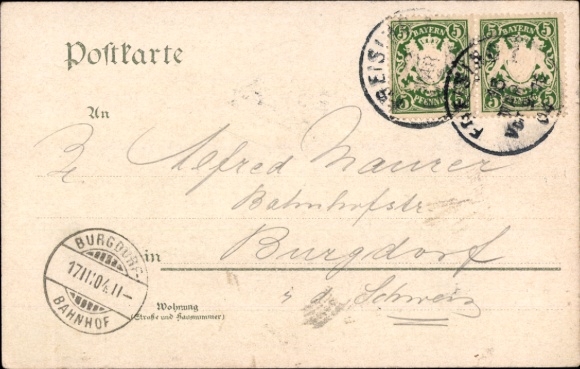 Postkarte
5 BAYERN 5
PFENNIG
5 BAYERN 5
PFENNIG
An
Alfred Maurer
Bahnhofstr
in Burgdorf
Schweiz
BURGDORF
17.II.04.11-
BAHNHOF
Wohnung
(Straße und Hausnummer)